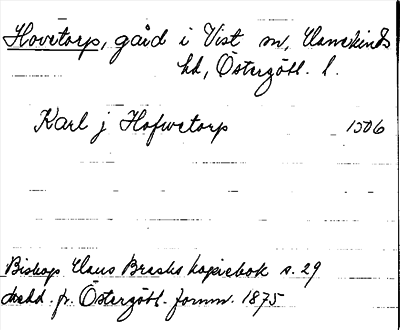 Hovetorp, gård i Vist sn, Hanekinds
hd, Östergötl. l.
Karl j Hofwetorp 1506
Biskop Hans Brasks kopiebok s. 29
Medd. fr. Östergötl. fornm. 1875